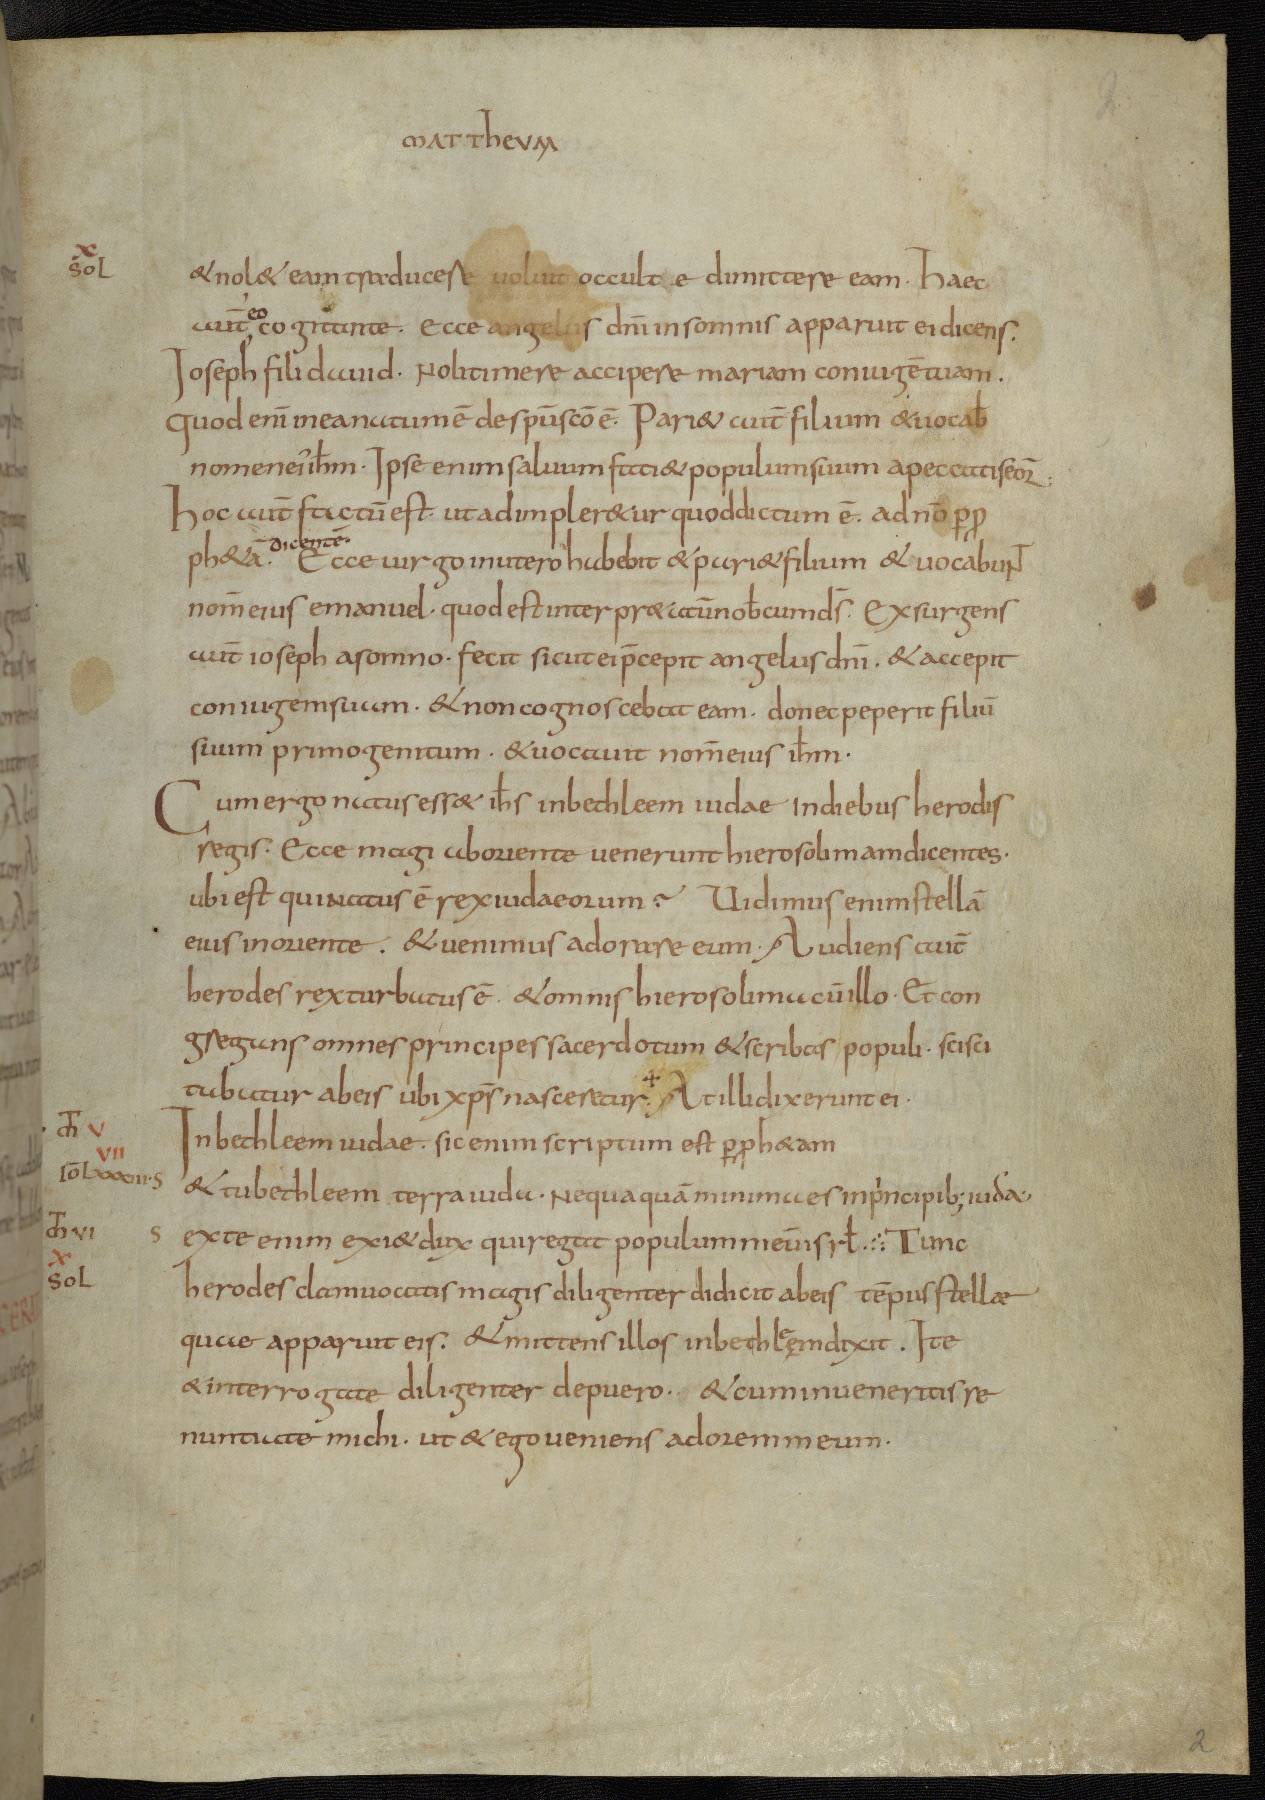 MATTHEUM
2
x
sol
& nol& eam traducere voluit occulte dimittere eam. Haec
aut̄ eo cogitante. Ecce angelus dnī in somnis apparuit ei dicens.
Ioseph fili david. Noli timere accipere mariam coniugē tuam.
quod enī in ea natum ē de spū scō ē. Pari& aut̄ filium & vocab̄
nomen ei' ih̄m. Ipse enim saluum faci& populum suum a peccatis eoꝝ;
Hoc aut̄ factū est. ut adimpler&ur quod dictum ē. a dnō ꝑ ꝓ
ph&ā dicentē. Ecce uirgo in utero habebit & pari& filium & uocabunt̄
nom̄ eius emanuel. quod est interpr&atū nob̄cum ds̄. Exsurgens
aut̄ ioseph a somno. fecit sicut ei p̄cepit angelus dnī. & accepit
coniugem suam. & non cognoscebat eam. donec peperit filiū
suum primogenitum. & uocauit nom̄ eius ih̄m.
Cum ergo natus ess& ih̄s in bethleem iudae in diebus herodis
regis. Ecce magi ab oriente venerunt hierosolimam dicentes.
ubi est qui natus ē rex iudaeorum? Uidimus enim stellā
eius in oriente. & uenimus adorare eum. Audiens aut̄
herodes rex turbatus ē. & omnis hierosolima cū illo. Et con
gregans omnes principes sacerdotum & scribas populi. scisci
tabatur ab eis ubi xp̄s nasceretur. At illi dixerunt ei.
Th̄ V
In bethleem iudae. sic enim scriptum est ꝑ ꝓph&am
VII
sol̄ xxxiii. s
& tu bethleem terra iuda. Nequaquā minima es in principib; iuda.
Th̄ VI s
ex te enim exi& dux qui regat populum meū isrl̄. Tunc
x
sol
herodes clam uocatis magis diligenter didicit ab eis tēpus stellae
quae apparuit eis. & mittens illos in bethleem dixit. Ite
& interrogate diligenter de puero. & cum inueneritis re
nuntiate michi. ut & ego ueniens adorem eum.
2